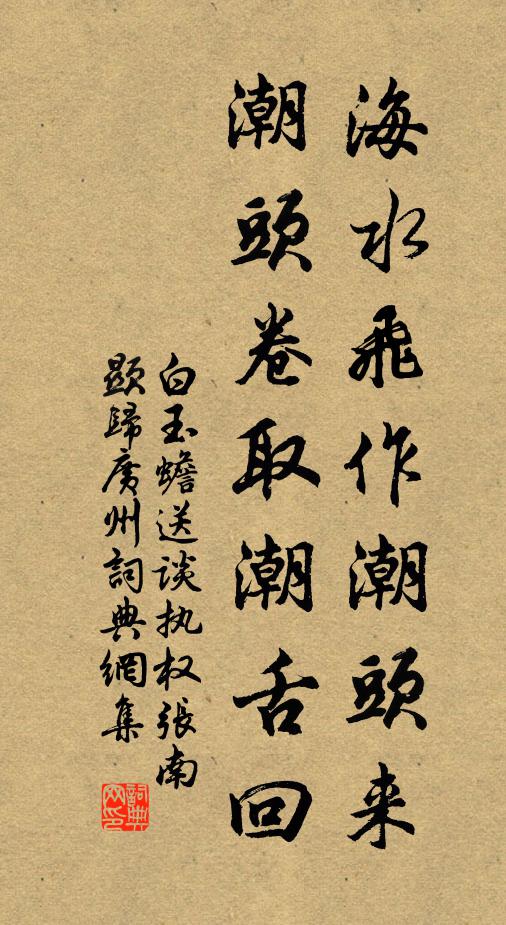 海水飛作潮頭来
潮頭卷取潮舌回
白玉蟾送谈执权張南
顯歸廣州詞典網集
詞典
网印